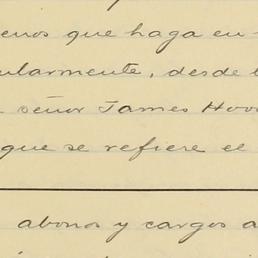 enos que haga en-
ularmente, desde
señor James Hoo
que se refiere el
abonos y cargos a